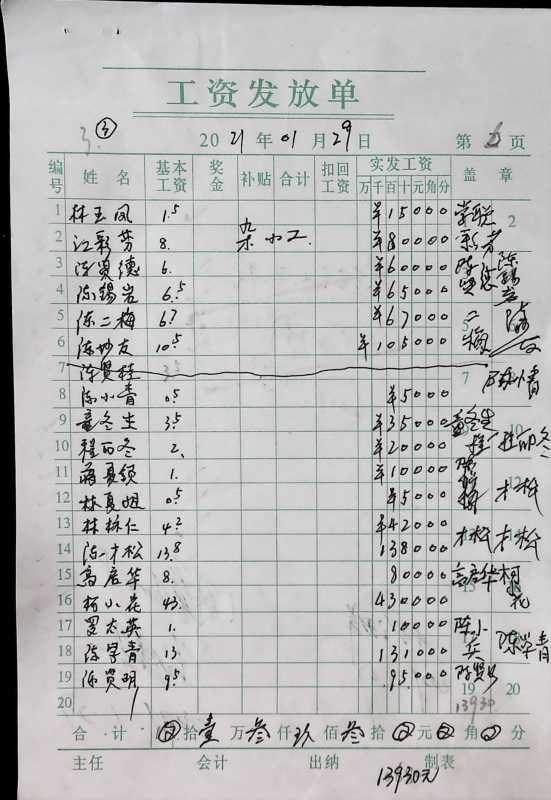 工资发放单
3. ③
2021年01月29日 第6页
编号 姓名 基本工资 奖金 补贴 合计 扣回工资 实发工资 盖章
万千百十元角分
1 林玉凤 1.5 ¥15000
2 江彩芳 8. 杂小工. ¥80000 彩芳 2
3 陈贤德 6. ¥60000 陈贤德
4 陈锡岩 6.5 ¥65000 陈锡岩
5 陈二梅 6.7 ¥67000 二梅
6 陈妙友 10.5 ¥105000
7 陈贤桂 3.5 7
8 陈小青 0.5 ¥5000 陈小青
9 童冬生 3.5 ¥35000 童冬生
10 程丽冬 2. ¥20000 程丽冬
11 1. ¥10000
12 0.5 ¥5000 才松
13 林栋仁 4.2 ¥42000 才松 才松
14 陈才松 13.8 138000
15 高启华 8. 80000 高启华
16 柯小花 43. 430000 柯花
17 罗太英 1. 10000 陈小兵
18 陈学青 13 131000 陈学青
19 陈贤明 9.5 95000 19 20
20 13930
合计 ⊗拾壹万叁仟玖佰叁拾⊗元⊗角⊗分
主任 会计 出纳 制表
13930元